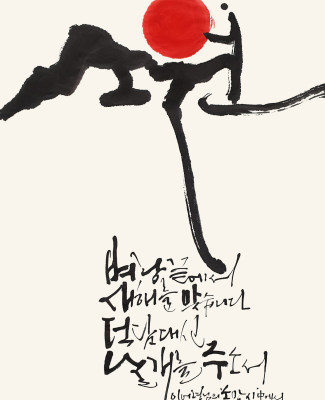 벼랑끝에서
새해를 맞습니다
덕담대신
날개를 주소서
이어령님의 소망 시中에서